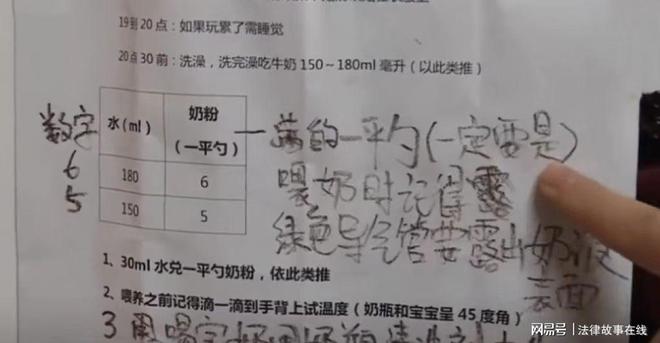 19到20点：如果玩累了需睡觉
20点30前：洗澡，洗完澡吃牛奶150～180ml毫升（以此类推）
数字 水(ml) 奶粉（一平勺） 一满的一平勺(一定要是)
6 180 6 喂奶时记得露
5 150 5 绿色导气管要露出奶液
表面
1、30ml水兑一平勺奶粉，依此类推
2、喂养之前记得滴一滴到手背上试温度（奶瓶和宝宝呈45度角）
3用喝完奶
网易号 | 法律故事在线